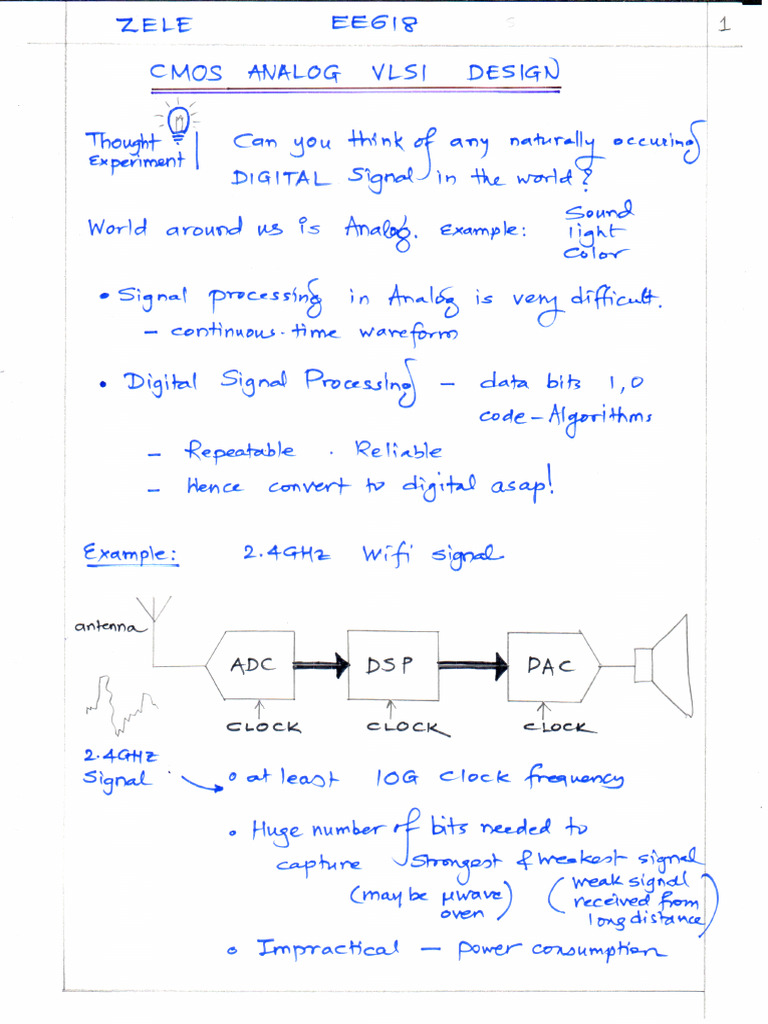 ZELE EE618 1
CMOS ANALOG VLSI DESIGN
Thought Experiment
Can you think of any naturally occuring
DIGITAL Signal in the world?
World around us is Analog. Example: Sound
light
color
• Signal processing in Analog is very difficult.
– continuous-time waveform
• Digital Signal Processing – data bits 1,0
code – Algorithms
– Repeatable . Reliable
– Hence convert to digital asap!
Example: 2.4GHz Wifi signal
antenna
ADC DSP DAC
CLOCK CLOCK CLOCK
2.4GHz
Signal
• at least 10G clock frequency
• Huge number of bits needed to
capture strongest & weakest signal
(maybe μwave oven)
(weak signal received from long distance)
• Impractical – power consumption